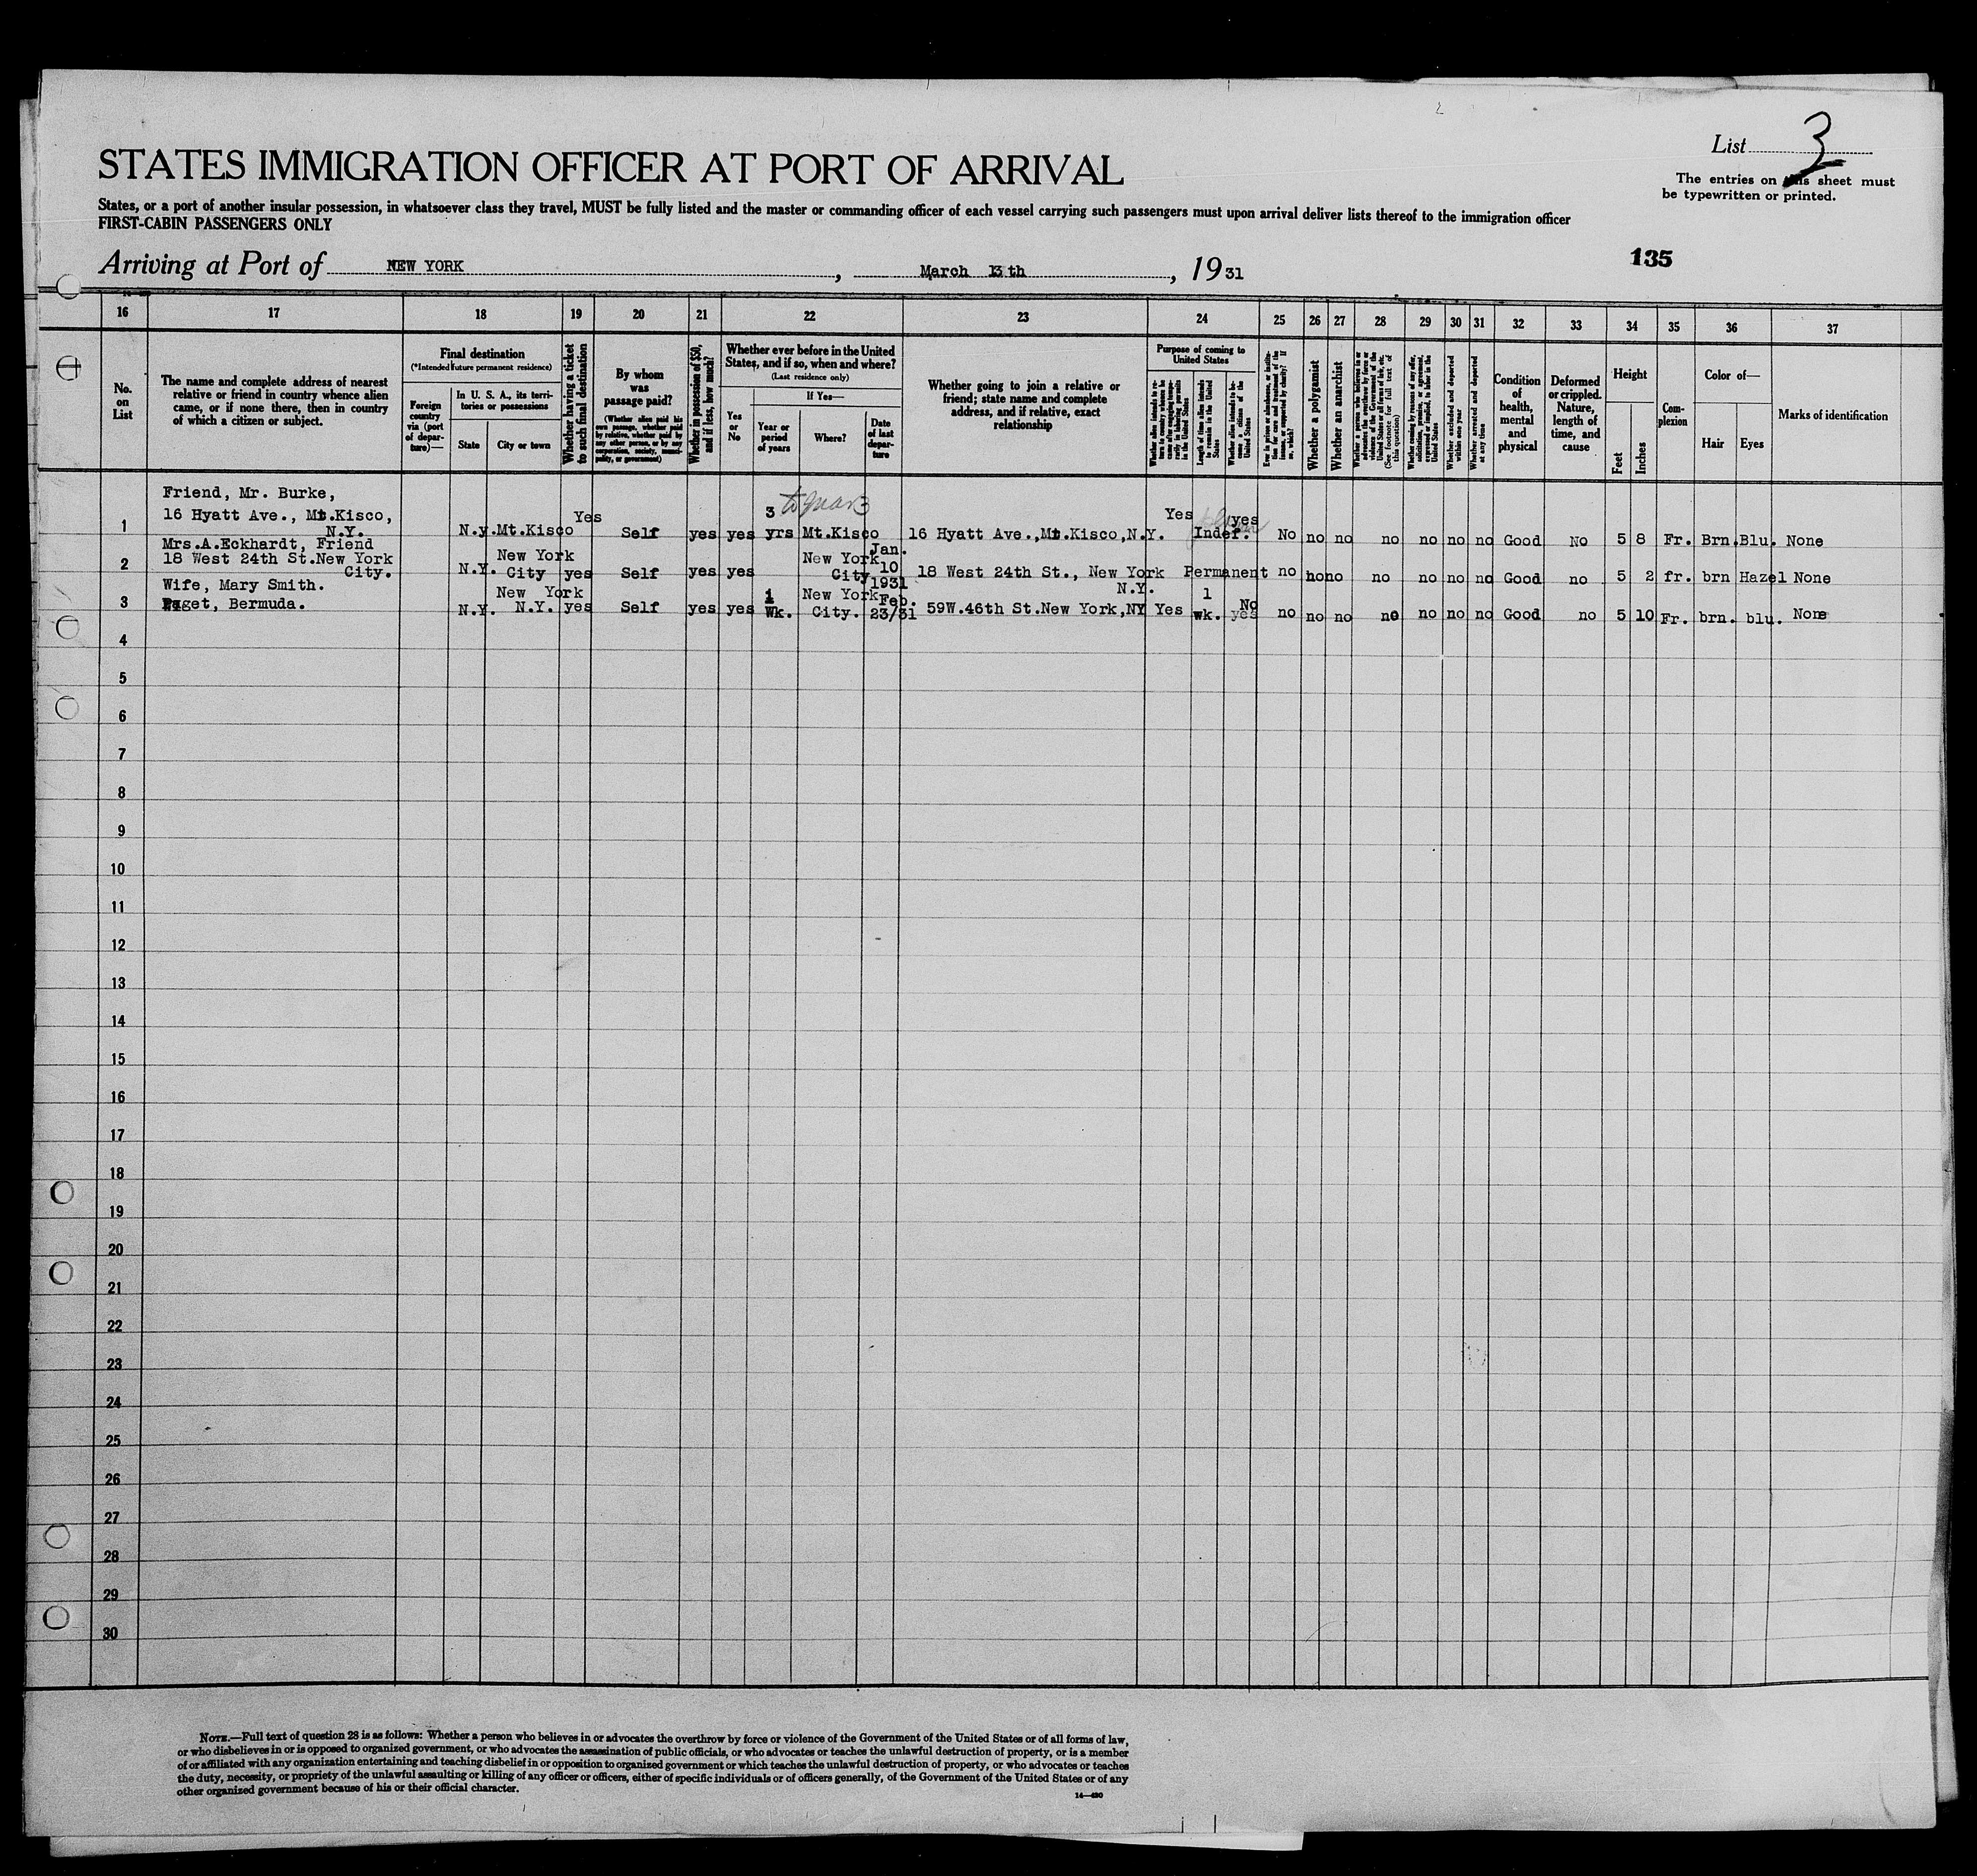 List 3
STATES IMMIGRATION OFFICER AT PORT OF ARRIVAL
The entries on this sheet must
be typewritten or printed.
States, or a port of another insular possession, in whatsoever class they travel, MUST be fully listed and the master or commanding officer of each vessel carrying such passengers must upon arrival deliver lists thereof to the immigration officer
FIRST-CABIN PASSENGERS ONLY
Arriving at Port of NEW YORK, March 13th, 1931
135
16 17 18 19 20 21 22 23 24 25 26 27 28 29 30 31 32 33 34 35 36 37
No.
on
List
The name and complete address of nearest
relative or friend in country whence alien
came, or if none there, then in country
of which a citizen or subject.
Final destination
(*Intended future permanent residence)
Foreign
country
via (port
of depar-
ture)—
In U. S. A., its terri-
tories or possessions
State
City or town
Whether having a ticket
to such final destination
By whom
was
passage paid?
(Whether alien paid his
own passage, whether paid
by relative, whether paid by
any other person, or by any
corporation, society, munici-
pality, or government)
Whether in possession of $50,
and if less, how much?
Whether ever before in the United
States, and if so, when and where?
(Last residence only)
If Yes—
Yes
or
No
Year or
period
of years
Where?
Date
of last
depar-
ture
Whether going to join a relative or
friend; state name and complete
address, and if relative, exact
relationship
Purpose of coming to
United States
Length of time alien intends
to remain in the United
States
Whether alien intends to be-
come a citizen of the
United States
Whether a polygamist
Whether an anarchist
(See footnote for full text of
this question)
Whether excluded and deported
within one year
Whether arrested and deported
at any time
Condition
of
health,
mental
and
physical
Deformed
or crippled.
Nature,
length of
time, and
cause
Height
Feet
Inches
Com-
plexion
Color of—
Hair
Eyes
Marks of identification
Friend, Mr. Burke,
16 Hyatt Ave., Mt.Kisco,
N.Y.
1 N.y. Mt.Kisco Yes Self yes yes 3 yrs Mt.Kisco 16 Hyatt Ave.,Mt.Kisco,N.Y. Yes Indef. yes No no no no no no no Good No 5 8 Fr. Brn. Blu. None
Mrs.A.Eckhardt, Friend
18 West 24th St.New York
City.
2 N.Y. New York City yes Self yes yes New York City Jan. 10 1931 18 West 24th St., New York N.Y. Permanent no no no no no no no Good no 5 2 fr. brn Hazel None
Wife, Mary Smith.
Paget, Bermuda.
3 N.Y. New York N.Y. yes Self yes yes 1 Wk. New York City. Feb. 23/31 59W.46th St.New York,NY Yes 1 wk. No yes no no no no no no no Good no 5 10 Fr. brn. blu. None
4
5
6
7
8
9
10
11
12
13
14
15
16
17
18
19
20
21
22
23
24
25
26
27
28
29
30
NOTE.—Full text of question 28 is as follows: Whether a person who believes in or advocates the overthrow by force or violence of the Government of the United States or of all forms of law,
or who disbelieves in or is opposed to organized government, or who advocates the assassination of public officials, or who advocates or teaches the unlawful destruction of property, or is a member
of or affiliated with any organization entertaining and teaching disbelief in or opposition to organized government or which teaches the unlawful destruction of property, or who advocates or teaches
the duty, necessity, or propriety of the unlawful assaulting or killing of any officer or officers, either of specific individuals or of officers generally, of the Government of the United States or of any
other organized government because of his or their official character.
14—430